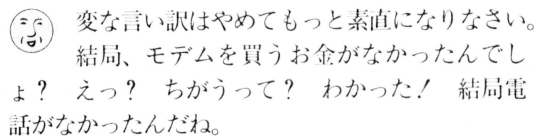 変な言い訳はやめてもっと素直になりなさい。
結局、モデムを買うお金がなかったんでし
ょ？　えっ？　ちがうって？　わかった！　結局電
話がなかったんだね。